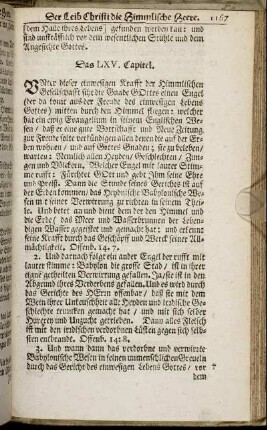 Der Leib Christi die Himmlische Heerde. 1167
dem Halle ihres Lebens] gefunden werden kan: und
sind unsträfflich vor dem wesentlichen Stuhle und dem
Angesichte Gottes.
Das LXV. Capitel.
UNter dieser einwesigen Krafft der Himmlischen
Gesellschafft sihe die Gnade GOttes einen Engel
(der da tone aus der Freude des einwesigen Lebens
Gottes) mitten durch den Himmel fliegen: welcher
hat ein ewig Evangelium in seinem Englischen We-
sen/ daß er eine gute Bottschafft und Neue Zeitung
zur Freude solte verkündigen allen denen die auf der Er-
den wohnen/ und auf Gnade/ selig zu werden/ war-
teten: Nemlich allen Heyden/ Geschlechten/ Zun-
gen und Völckern. Welcher Engel mit lauter Stim-
me rufft: Fürchtet GOtt und gebt Ihm seine Ehre
und Preiß. Dann die Stunde seines Gerichts ist auf
der Erden kommen/ das Heydnische Babylonische We-
sen in seiner Verwirrung zu richten in seinem Theile.
Und betet an und dient dem der den Himmel und
die Erde/ das Meer und Wasserbrunnen der Leben-
digen Wasser gegeistet und gemacht hat: und erkennt
seine Krafft durch das Geschöpff und Werck seiner All-
mächtigkeit. Offenb. 14. 7.
2. Und darnach folgt ein ander Engel der rufft mit
lauter stimme: Babylon die grosse Stad/ ist in ihrer
eigne getheilten Verwirrung gefallen. Ja/ sie ist in den
Abgrund ihres Verderbens gefallen. Und es wird durch
das Gerichte des HErrn offenbar/ daß sie mit dem
Wein ihrer Unkeuschheit alle Heyden und irdische Ge-
schlechte truncken gemacht hat/ und mit sich selber
Hurerey und Unzucht getrieben. Dann alles Fleisch
ist mit den irdischen verdorbnen Lüsten gegen sich selb-
sten entbrannt. Offenb. 14:8.
3. Und wann dann das verdorbne und verwirrte
Babylonische Wesen in seinen unmenschlichen Greueln
durch das Gericht des einwesigen Lebens Gottes/ vor
dem